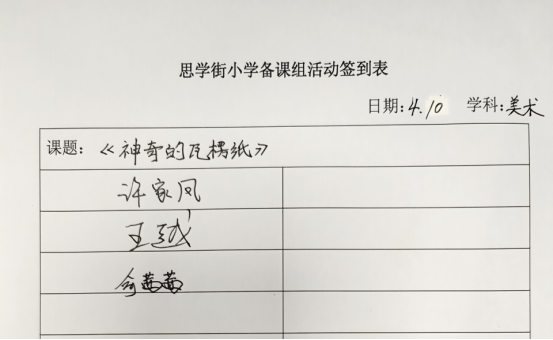 思学街小学备课组活动签到表
日期:4.10 学科:美术
课题:《神奇的瓦楞纸》
许家凤
王越
俞茜茜